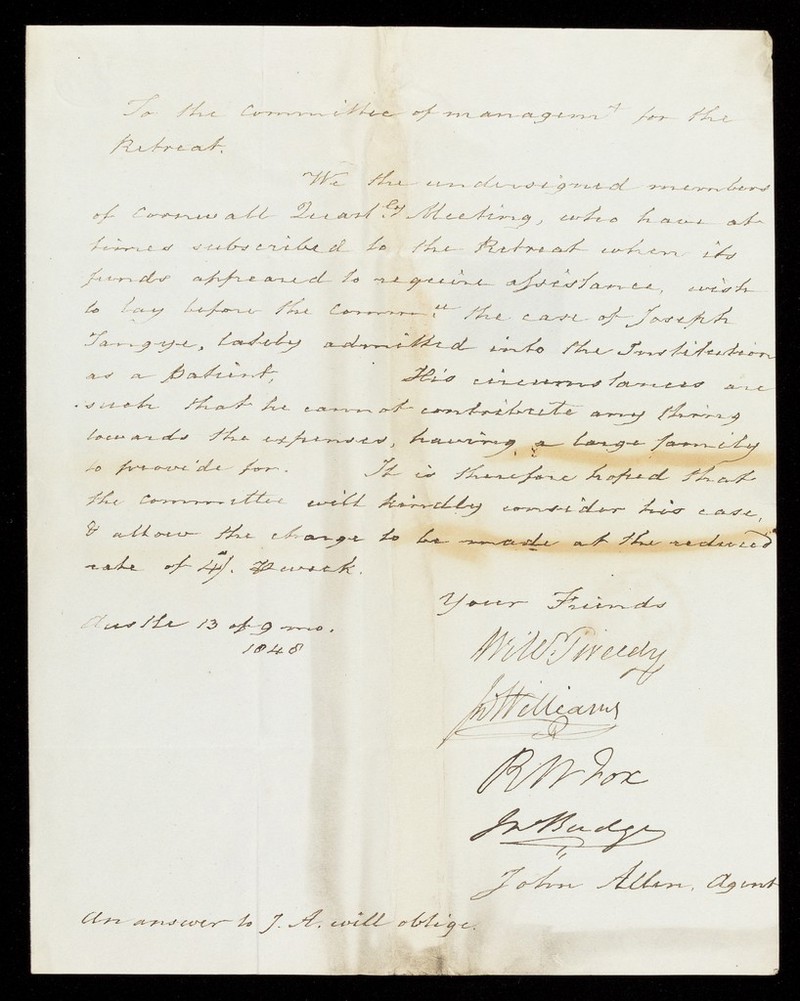 To the Committee of managemt for the
Retreat.
We the undersigned members
of Cornwall Quartly Meeting, who have at
times subscribed to the Retreat when its
funds appeared to require assistance, wish
to lay before the Commee the case of Joseph
Tangye, lately admitted into the Institution
as a patient, His circumstances are
such that he cannot contribute any thing
towards the expenses, having a large family
to provide for. It is therefore hoped that
the committee will kindly consider his case,
& allow the charge to be made at the reduced
rate of 4/. ⅌ week.
Your Friends
Austle 13 of 9 mo.
1848
Will. Tweedy
Jn Williams
R W Fox
Jn Budge
John Allen, Agent
An answer to J. A. will oblige.